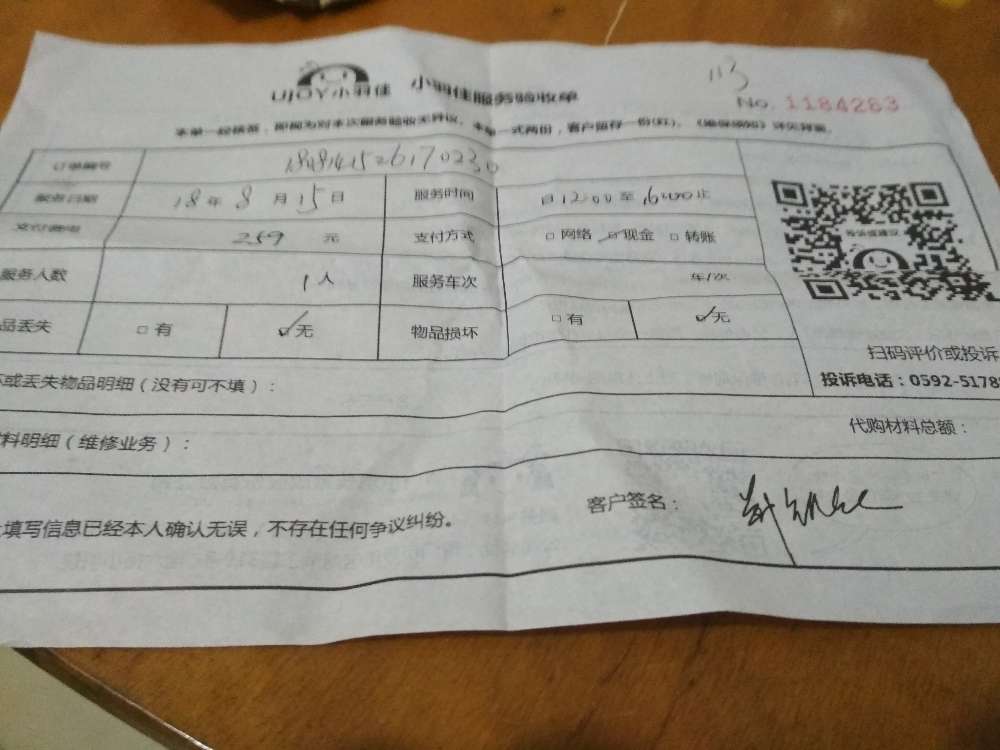 113
UJOY小羽佳 小羽佳服务验收单
No. 1184283
本单一经核签，即视为对本次服务验收无异议。本单一式两份，客户留存一份(红)。《维保须知》详见背面。
订单编号
服务日期 18年8月15日 服务时间 日12:00至16:00止
支付费用 259元 支付方式 □网络 ☑现金 □转账
服务人数 1人 服务车次 车/次
品丢失 □有 ☑无 物品损坏 □有 ☑无
扫码评价或投诉
投诉电话：0592-5178
坏或丢失物品明细（没有可不填）：
料明细（维修业务）： 代购材料总额：
填写信息已经本人确认无误，不存在任何争议纠纷。 客户签名：